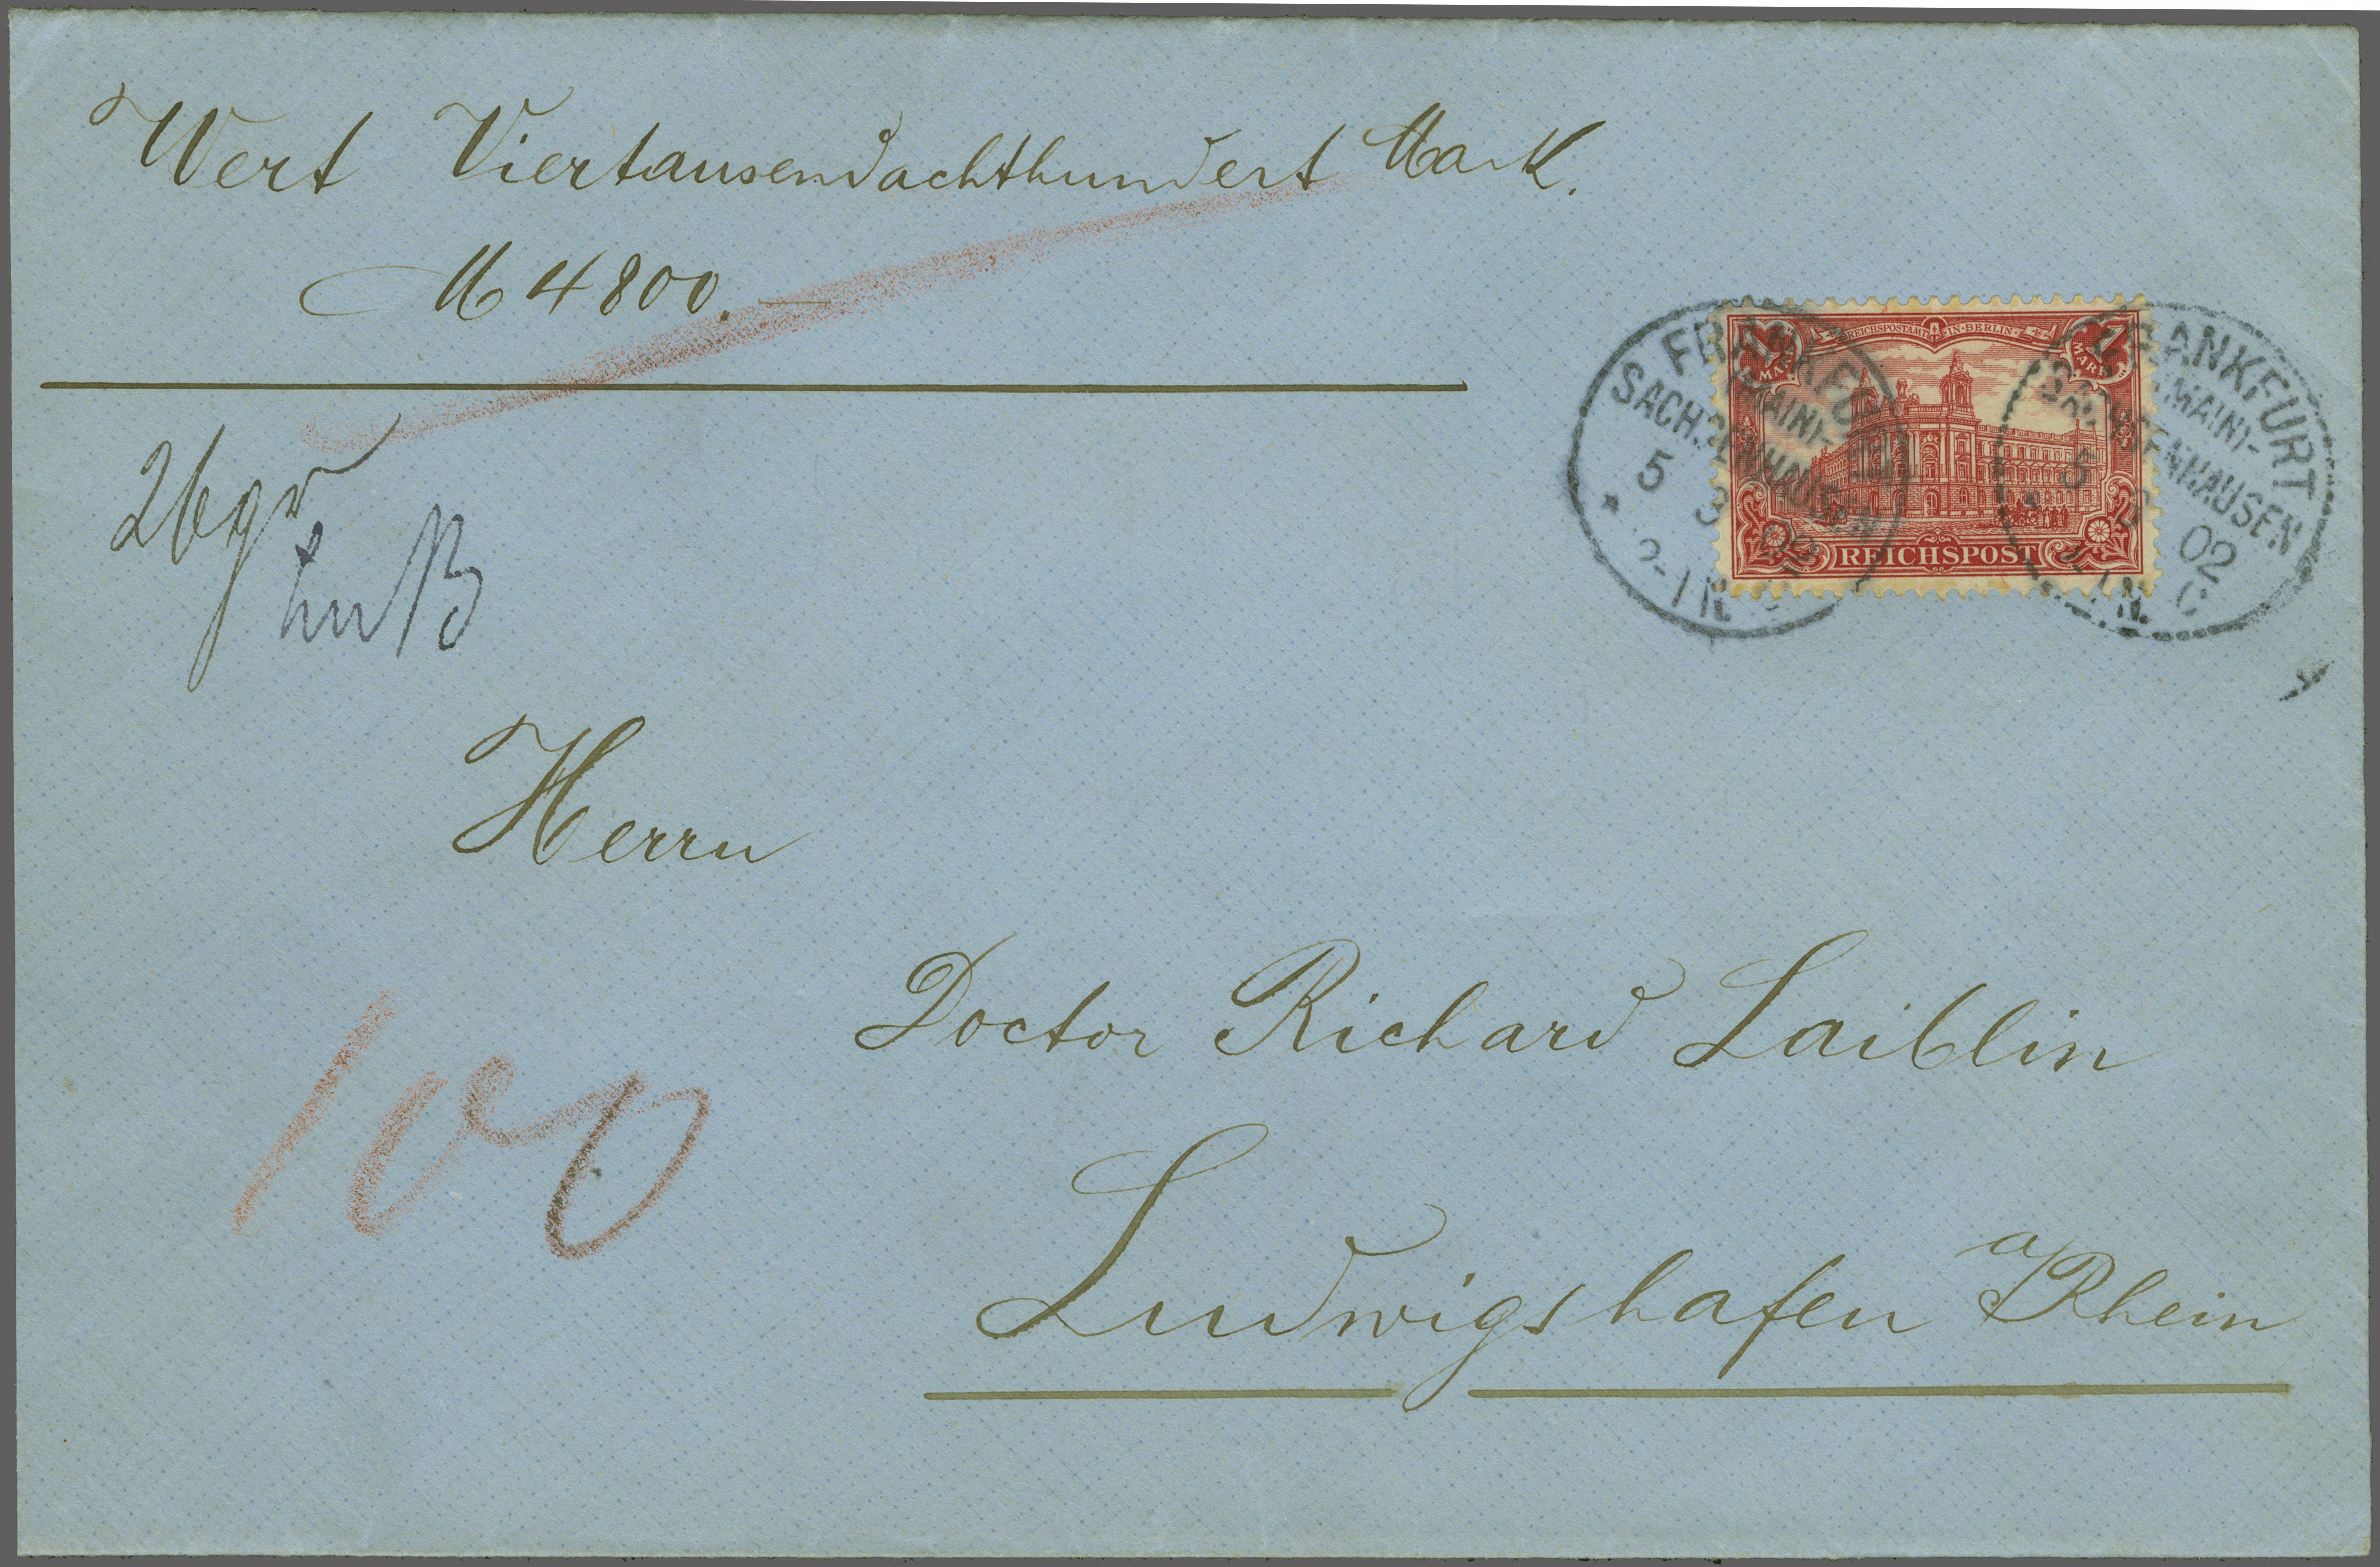 Wert Viertausendachthundert Mark.
M 4800.—
REICHSPOSTAMT IN BERLIN
1 MARK
1 MARK
REICHSPOST
FRANKFURT
(MAIN)-
SACHSENHAUSEN
5 3 02
2-1N.
FRANKFURT
(MAIN)-
SACHSENHAUSEN
5 3 02
N. C
26gr
Herrn
Doctor Richard Laiblin
100
Ludwigshafen a/Rhein